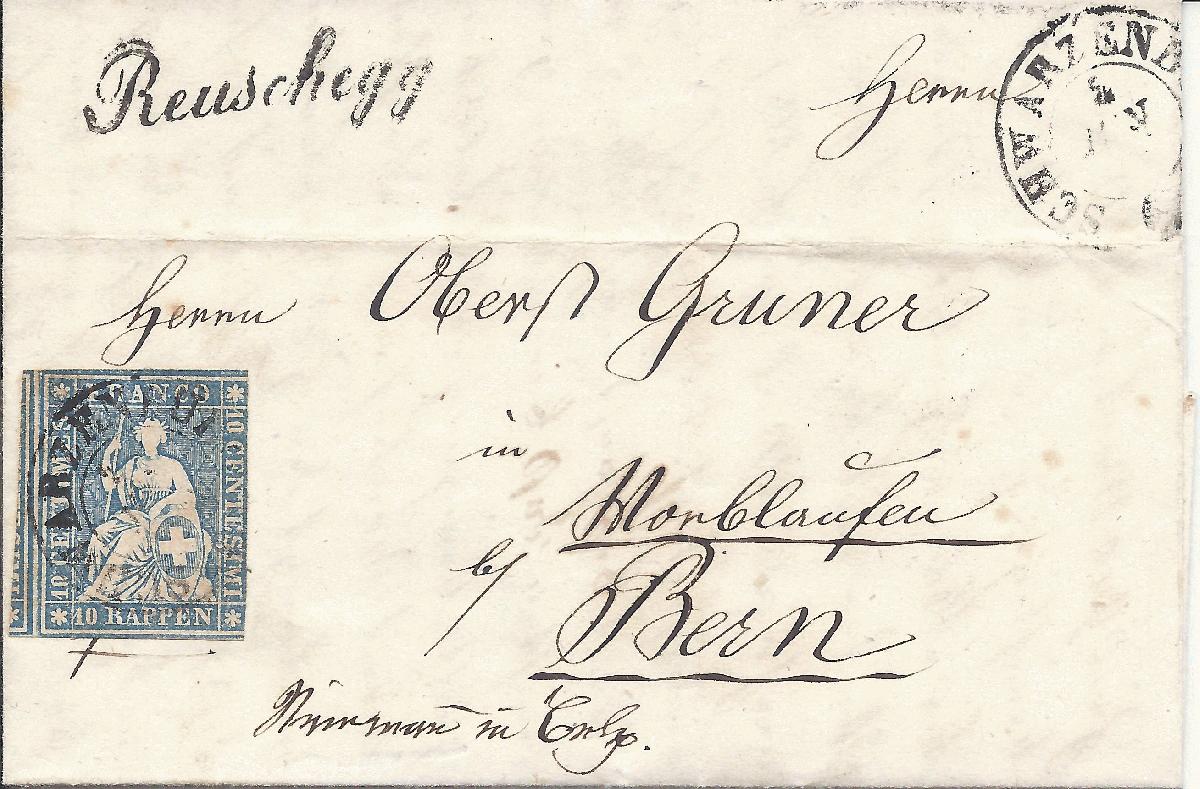 Reuschegg
Herrn
SCHWARZENB
Herrn Oberst Gruner
in
Worblaufen
b/
Bern
FRANCO
10 CENTESIMI
10 RAPPEN
ARZENBU
in